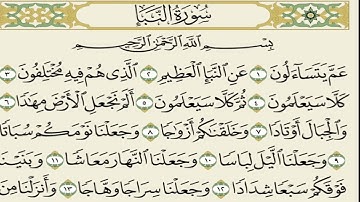 سُورَةُ النَّبَإِ
بِسْمِ اللَّهِ الرَّحْمَٰنِ الرَّحِيمِ
عَمَّ يَتَسَاءَلُونَ ١ عَنِ النَّبَإِ الْعَظِيمِ ٢ الَّذِي هُمْ فِيهِ مُخْتَلِفُونَ ٣
كَلَّا سَيَعْلَمُونَ ٤ ثُمَّ كَلَّا سَيَعْلَمُونَ ٥ أَلَمْ نَجْعَلِ الْأَرْضَ مِهَادًا ٦
وَالْجِبَالَ أَوْتَادًا ٧ وَخَلَقْنَاكُمْ أَزْوَاجًا ٨ وَجَعَلْنَا نَوْمَكُمْ سُبَاتًا
٩ وَجَعَلْنَا اللَّيْلَ لِبَاسًا ١٠ وَجَعَلْنَا النَّهَارَ مَعَاشًا ١١ وَبَنَيْنَا
فَوْقَكُمْ سَبْعًا شِدَادًا ١٢ وَجَعَلْنَا سِرَاجًا وَهَّاجًا ١٣ وَأَنْزَلْنَا مِنَ